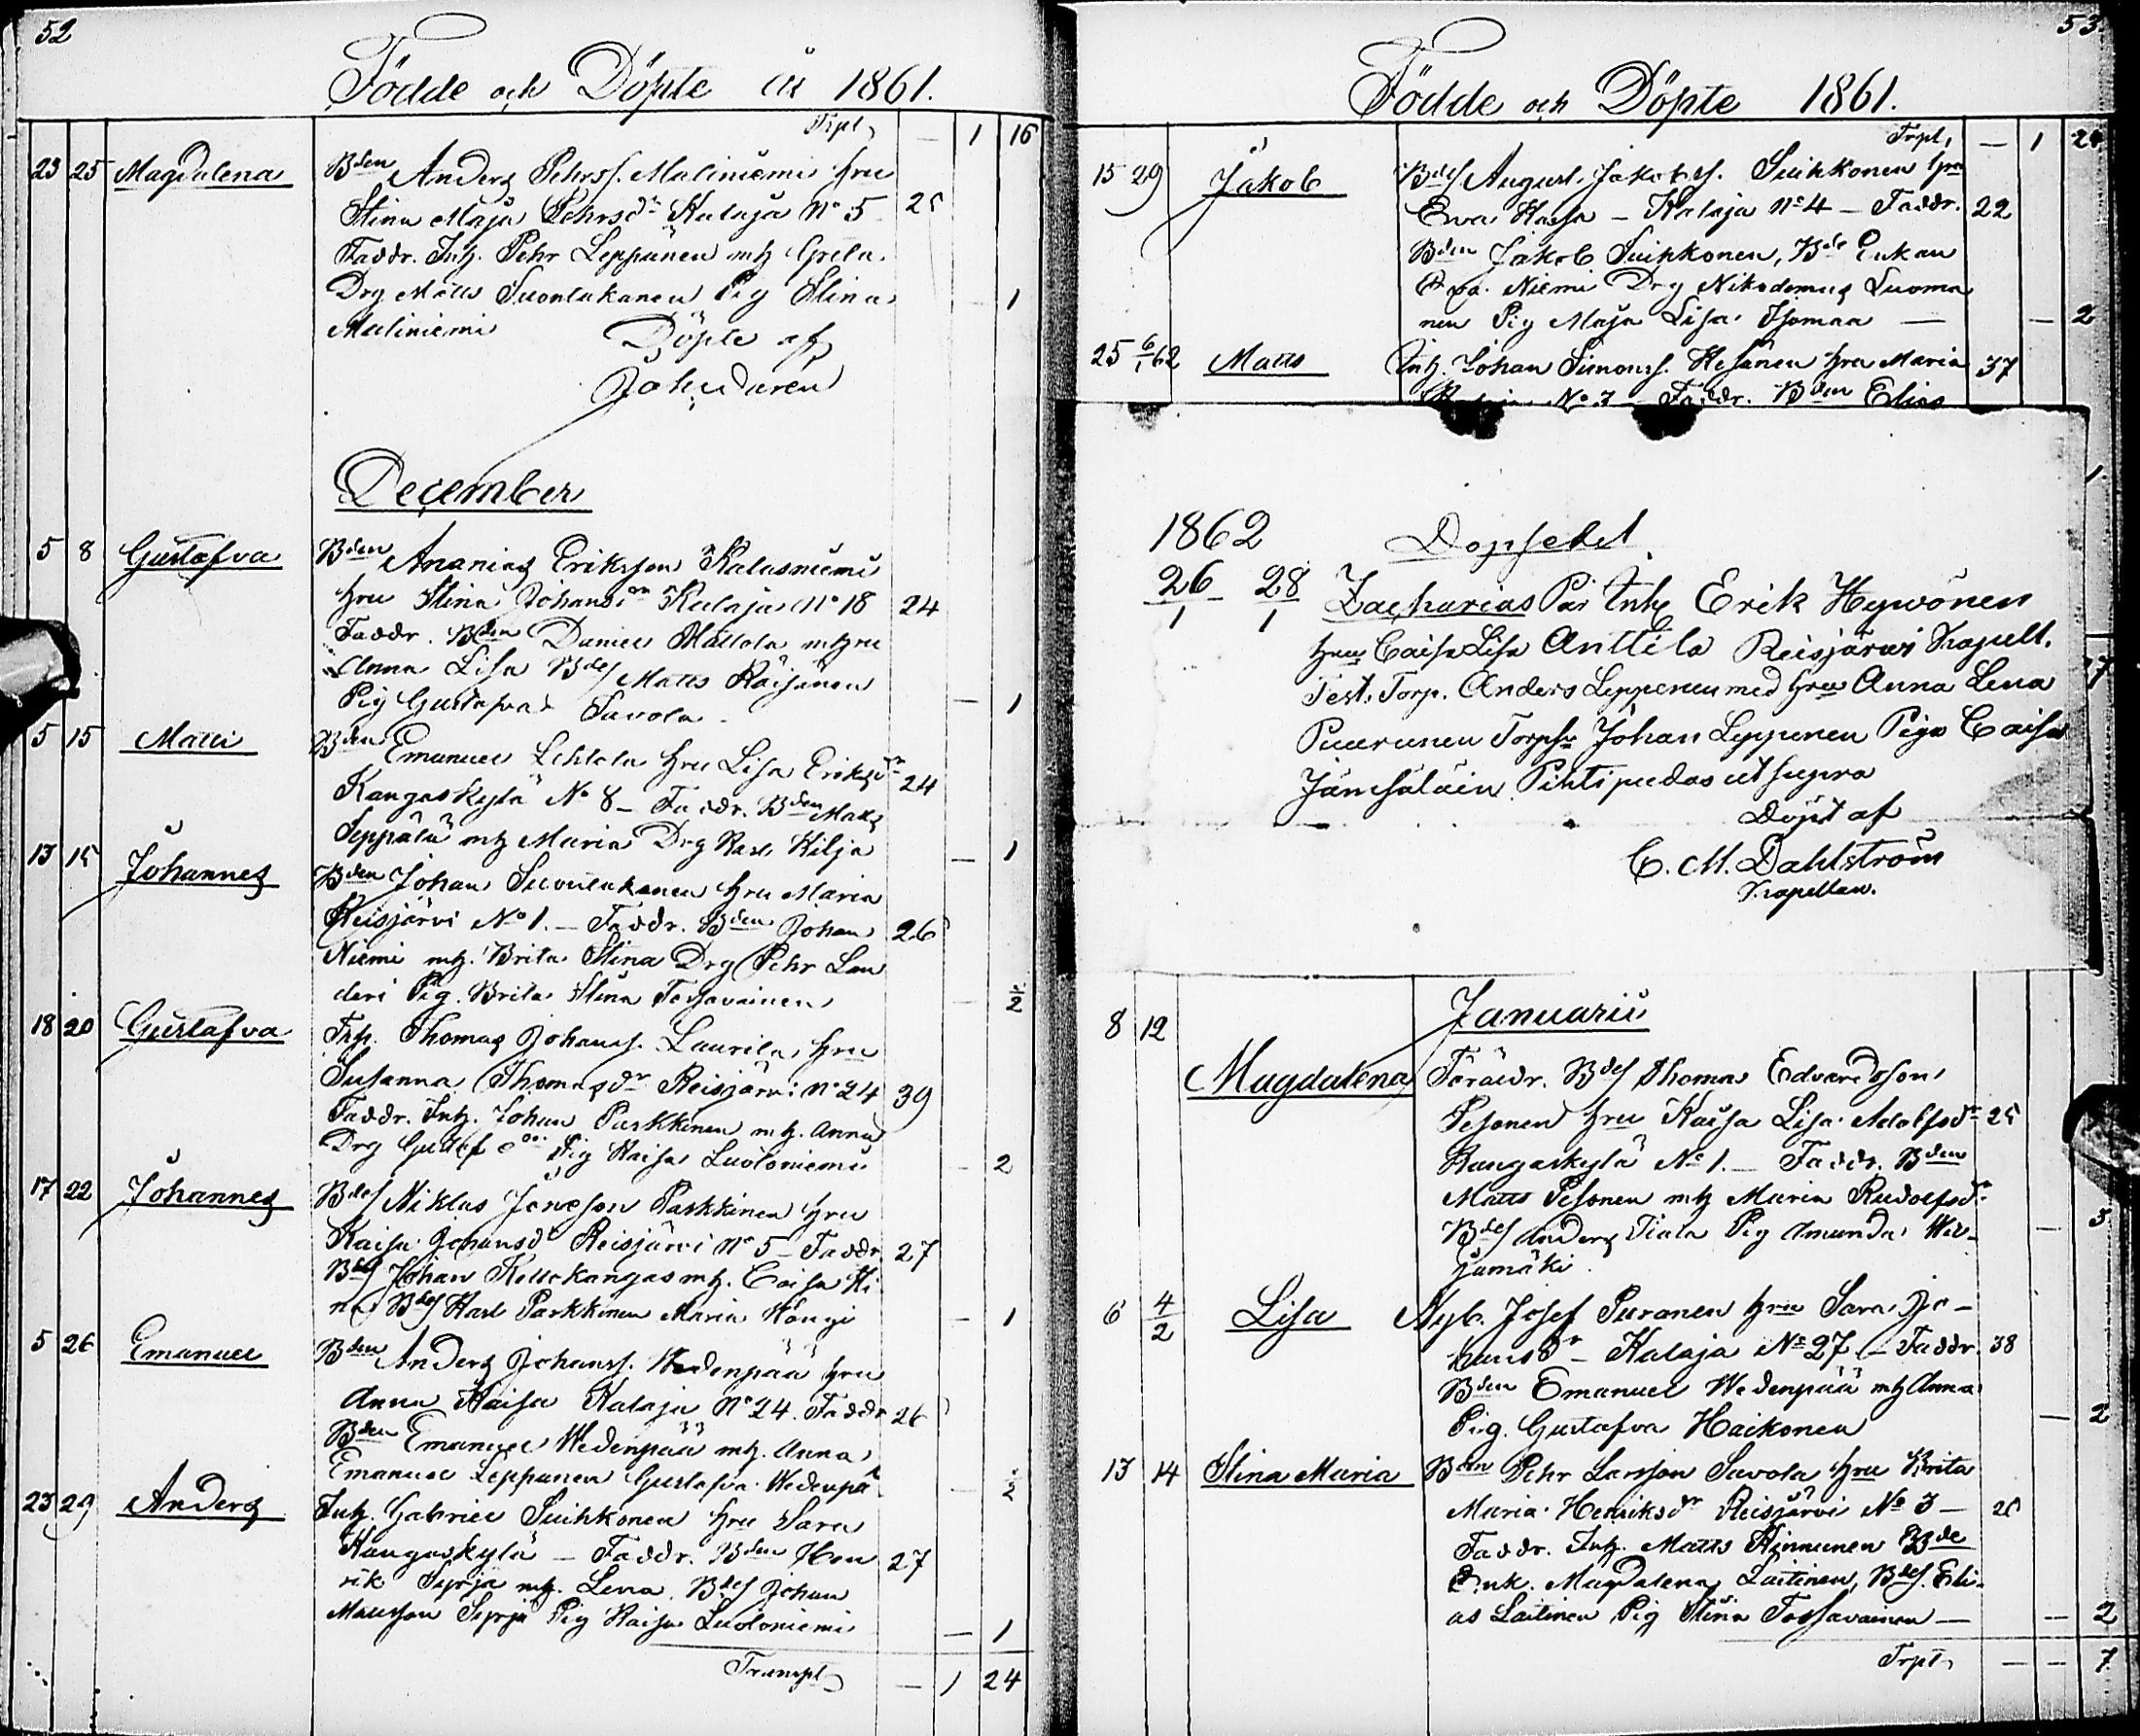 52
Födde och Döpte år 1861.
Trpt, — 1 16
23 25 Magdalena Bden Anders Pehrss. Maliniemi hru
Stina Maja Pehrsdr Kalaja No 5 25
Faddr. Inh. Pehr Leppänen mh Greta
Drg Matts Suontakanen Pig Stina 1
Maliniemi Döpte af
Joh. Durén
December
5 8 Gustafva Bden Ananias Eriksson Kalasniemi
hru Stina Johansdr Kalaja No 18 24
Faddr. Bden Daniel Mattola mhru
Anna Lisa Bdes Matts Räisänen
Pig Gustafva Savola — 1
5 15 Matti Bden Emanuel Lehtola hru Lisa Eriksdr 24
Kangaskylä No 8 — Faddr. Bden Matts
Seppälä mh Maria Drg Karl Kilja — 1
13 15 Johannes Bden Johan Suontakanen hru Maria
Reisjärvi No 1. — Faddr. Bden Johan 26
Niemi mh. Brita Stina Drg Pehr Lan
deri Pig. Brita Stina Tossavainen 2
18 20 Gustafva Trp. Thomas Johanss. Laurila, hru
Susanna Thomasdr Reisjärvi No 24 39
Faddr. Inh. Johan Parkkinen mh. Anna
Drg Gustaf Pig Kaisa Luotoniemi — 2
17 22 Johannes Bdes Niklas Parkkinen hru
Kaisa Johansd Reisjärvi No 5 — Faddr 27
Bdes Johan Kellokangas mh. Caisa Ki
na Bdes Karl Parkkinen Maria Köngi — 1
5 26 Emanuel Bden Anders Johanss. Wedenpää hru
Anna Kaisa Kalaja No 24. Faddr 26
Bden Emanuel Wedenpää mh. Anna
Emanuel Leppänen Gustafva Wedenpä — 2
23 29 Anders Inh. Gabriel Suihkonen hru Sara
Kangaskylä — Faddr. Bden Hen 27
rik mh. Lena Bdes Johan
Mattsson Pig Kaisa Luotoniemi — 1
Transpt — 1 24
53
Födde och Döpte 1861.
Trpt, — 1 24
15 29 Jakob Bdes August Jakobss. Suihkonen hru
Ewa Kaisa — Kalaja No 4 — Faddr. 22
Bden Jakob Suihkonen, Bde Enkan
Niemi Drg Nikodemus Luoma
nen Pig Maja Lisa Isomaa — — 2
25 6/1 62 Matts Inh. Johan Simonss. Hesänen hru Maria 37
No 7 — Faddr. Bden Elias
1862 Dopsedel
26/1 28/1 Zacharias Par Inh Erik Hywönen
hru Caisa Lisa Anttila Reisjärwi Kapell.
Test. Torp. Anders Leppenen med hru Anna Lena
Puurunen Torpsn Johan Leppenen Piga Caisa
Jämsäläin Pihtipudas ut supra
Döpt af
C. M. Dahlström
Kapellan.
Januarii
8 12 Magdalena Föräldr. Bdes Thomas Edvardsson
Pesonen hru Kaisa Lisa Adolfsdr 25
Kangaskylä No 1. — Faddr. Bden
Matts Pesonen mh Maria Rudolfsdr
Bdes Anders Tiala Pig Amanda Wil — 3
jamäki
6 4/2 Lisa Nyb. Josef Puranen hru Sara Jo-
hansdr — Kalaja No 27 — Faddr. 38
Bden Emanuel Wedenpää mh Anna
Pig. Gustafva Haikonen — 2
13 14 Stina Maria Bden Pehr Larsson Savola hru Brita
Maria Henriksdr Reisjärvi No 3 —
Faddr. Inh. Matts Kinnunen Bde
Enk. Magdalena Laitinen, Bdes. Eli-
as Laitinen Pig Stina Tossavainen — — 2
Trpt, — — 7